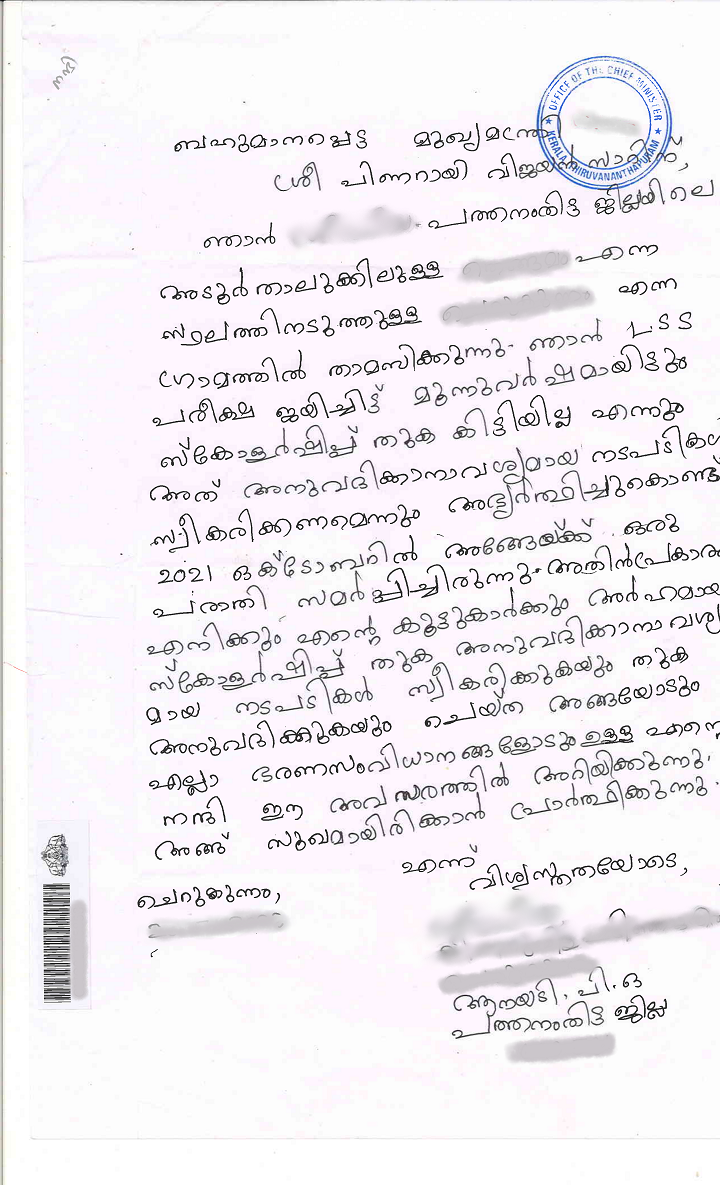 OFFICE OF THE CHIEF MINISTER
KERALA, THIRUVANANTHAPURAM
ബഹുമാനപ്പെട്ട മുഖ്യമന്ത്രി
ശ്രീ പിണറായി വിജയൻ സാറിന്,
ഞാൻ പത്തനംതിട്ട ജില്ലയിലെ
അടൂർ താലൂക്കിലുള്ള എന്ന
സ്ഥലത്തിനടുത്തുള്ള എന്ന
ഗ്രാമത്തിൽ താമസിക്കുന്നു. ഞാൻ LSS
പരീക്ഷ ജയിച്ചിട്ട് മൂന്നുവർഷമായിട്ടും
സ്കോളർഷിപ്പ് തുക കിട്ടിയില്ല എന്നും
അത് അനുവദിക്കാനാവശ്യമായ നടപടികൾ
സ്വീകരിക്കണമെന്നും അഭ്യർത്ഥിച്ചുകൊണ്ട്
2021 ഒക്ടോബറിൽ അങ്ങേയ്ക്ക് ഒരു
പരാതി സമർപ്പിച്ചിരുന്നു. അതിൻപ്രകാരം
എനിക്കും എന്റെ കൂട്ടുകാർക്കും അർഹമായ
സ്കോളർഷിപ്പ് തുക അനുവദിക്കാനാവശ്യ
മായ നടപടികൾ സ്വീകരിക്കുകയും തുക
അനുവദിക്കുകയും ചെയ്ത അങ്ങയോടും
എല്ലാ ഭരണസംവിധാനങ്ങളോടും ഉള്ള എന്റെ
നന്ദി ഈ അവസരത്തിൽ അറിയിക്കുന്നു.
അങ്ങ് സുഖമായിരിക്കാൻ പ്രാർത്ഥിക്കുന്നു.
എന്ന്
വിശ്വസ്തതയോടെ,
ചെറുകുന്നം,
ആനയടി. പി.ഒ
പത്തനംതിട്ട ജില്ല